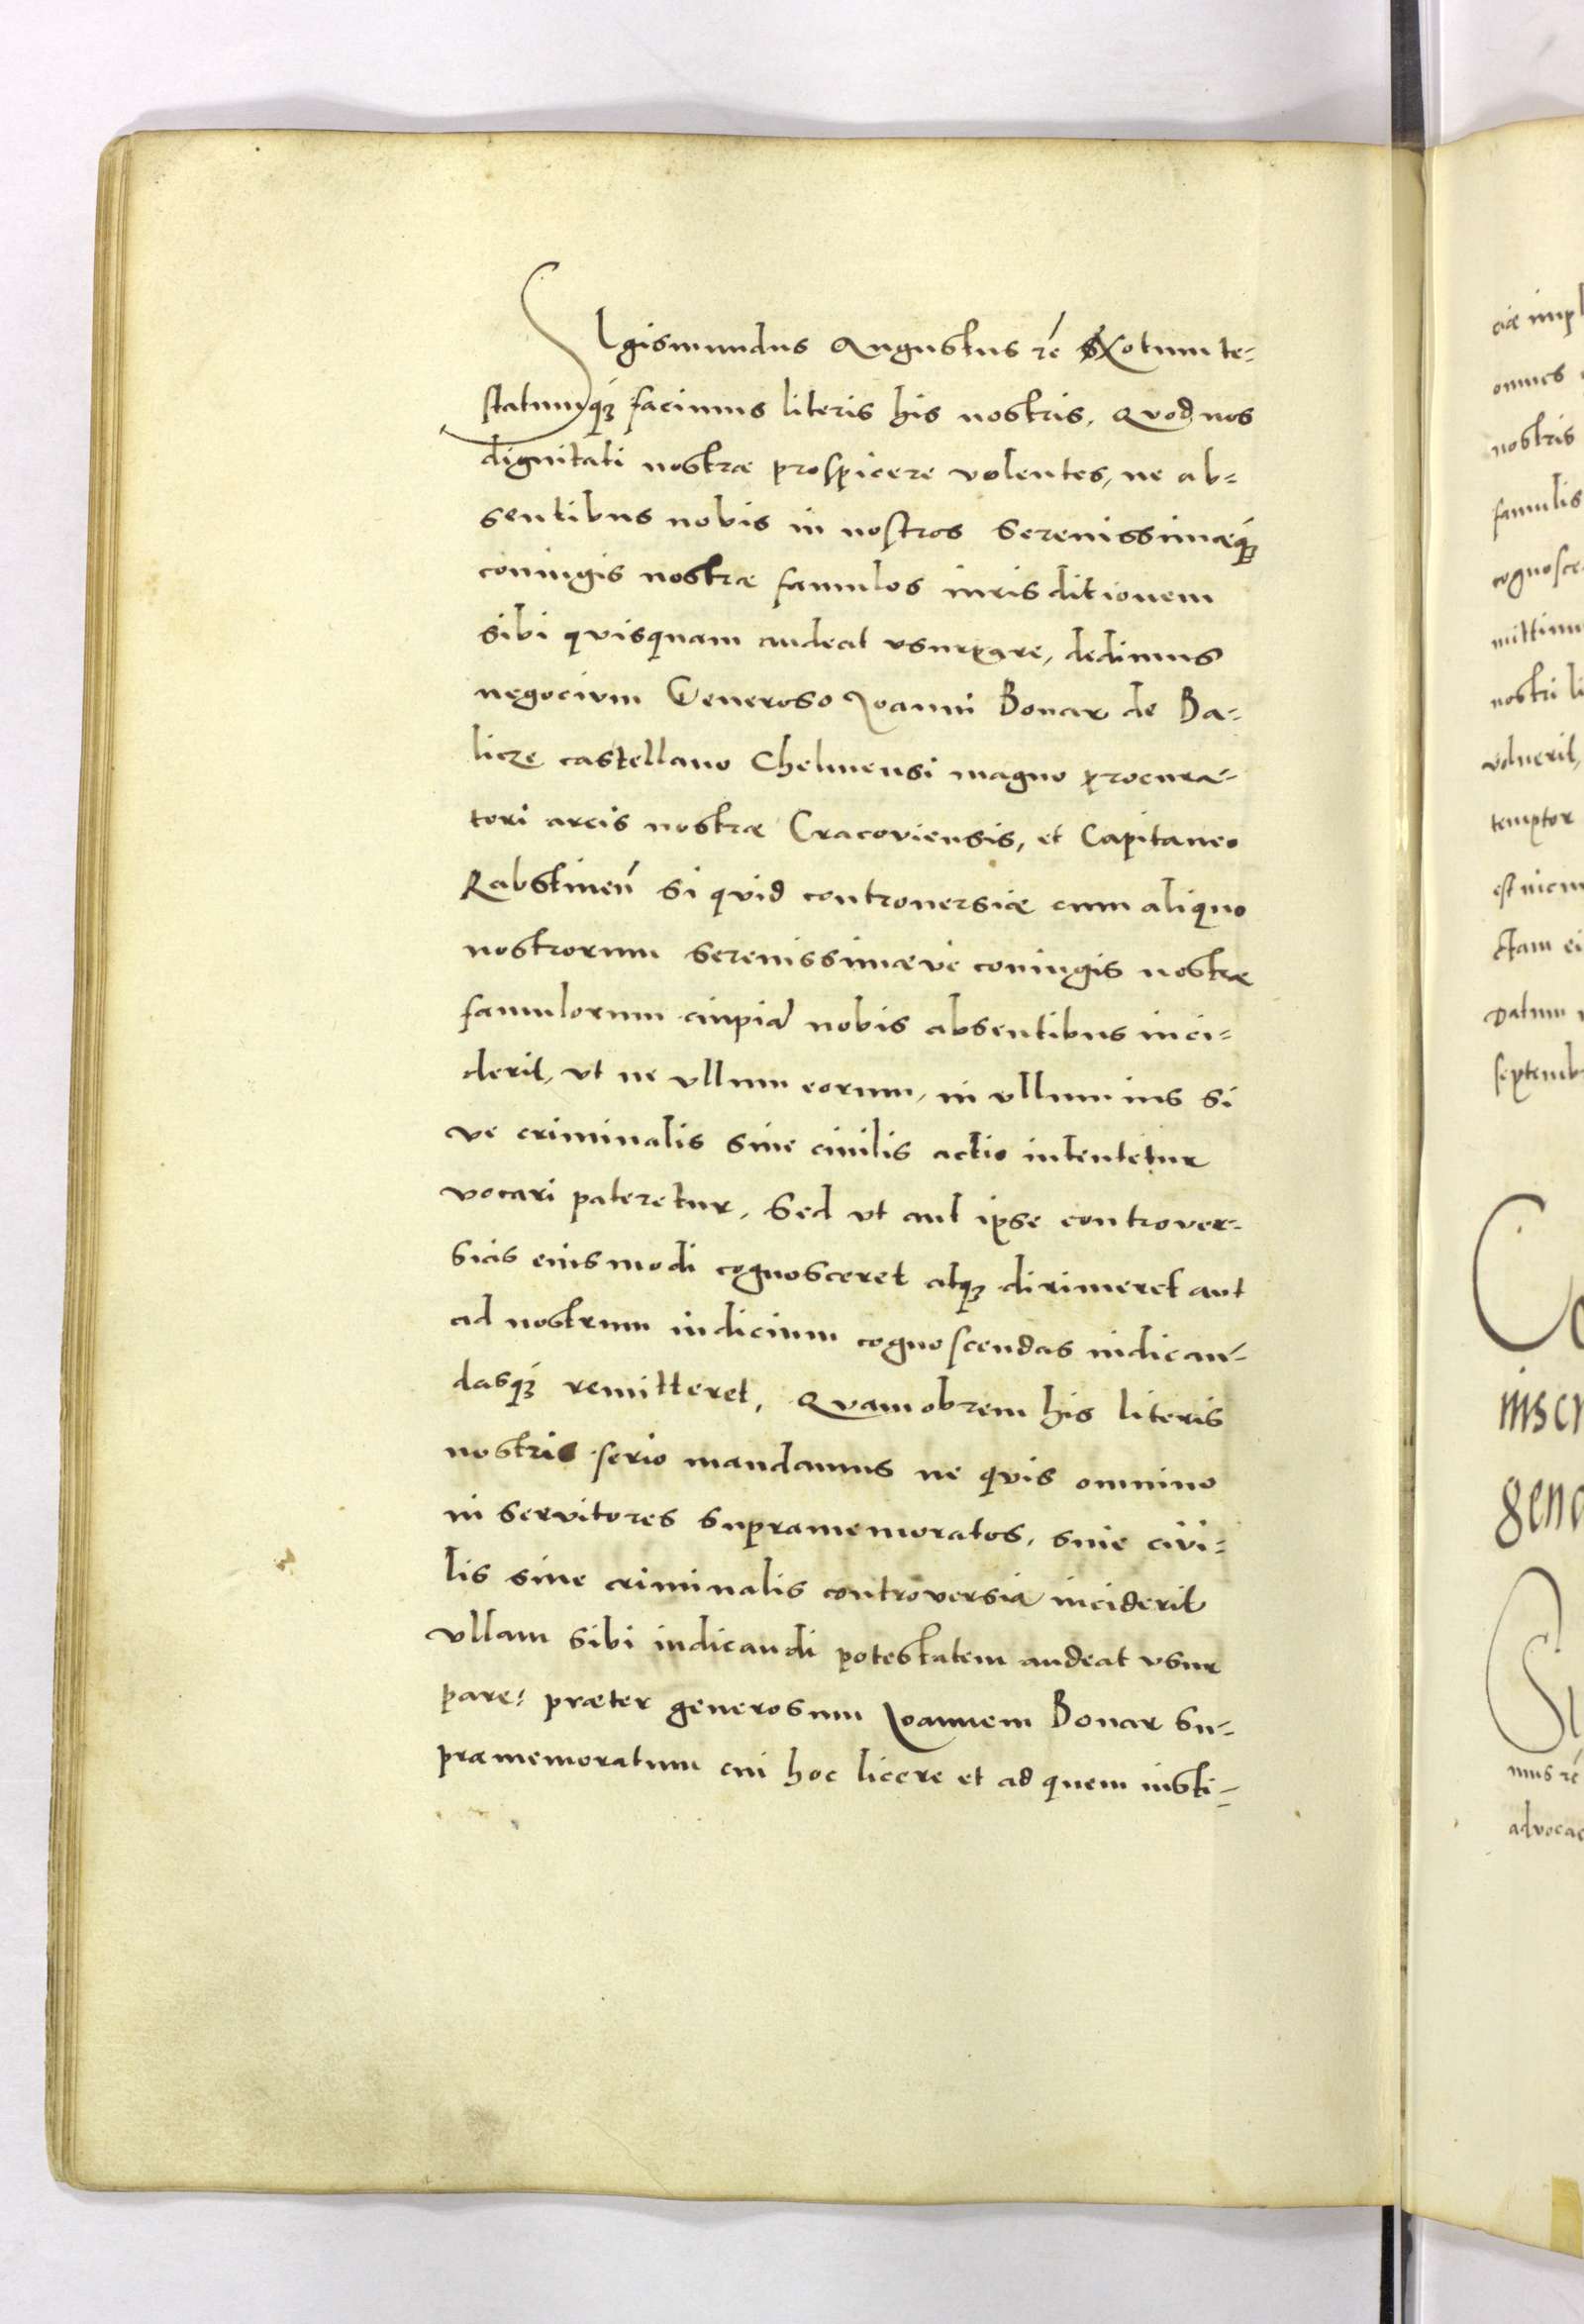 SIgismundus Augustus rē Notum te-
statumq́ꝫ facimus literis his nostris. Quod nos
dignitati nostræ prospicere volentes, ne ab-
sentibus nobis in nostros Serenissimæq́ꝫ
coniugis nostræ famulos iurisditionem
sibi quisquam audeat vsurpare, dedimus
negocium Generoso Joanni Bonar de Ba-
licze castellano Chelmensi magno procura-
tori arcis nostræ Cracoviensis, et Capitaneo
Rabstineñ si quid controuersiæ cum aliquo
nostrorum Serenissimæve coniugis nostræ
famulorum cuipiã nobis absentibus inci-
derit, vt ne vllum eorum, in vllum ius si
ve criminalis siue ciuilis actio intentetur
vocari pateretur, Sed vt aut ipse controver-
sias eiusmodi cognosceret atqꝫ dirimeret aut
ad nostrum iudicium cognoscendas iudican-
dasq́ꝫ remitteret, Quamobrem his literis
nostris serio mandamus ne quis omnino
in servitores supramemoratos, siue civi-
lis siue criminalis controversia inciderit
vllam sibi iudicandi potestatem audeat vsur
pare: præter generosum Joannem Bonar su-
pramemoratum cui hoc licere et ad quem iusti-
omnes
nostris
famulis
cognosce
mittimu
nostri li
voluerit,
temptor
ctam ei
Datum
septemb
Co
inscr
gene
mus rē
advocac